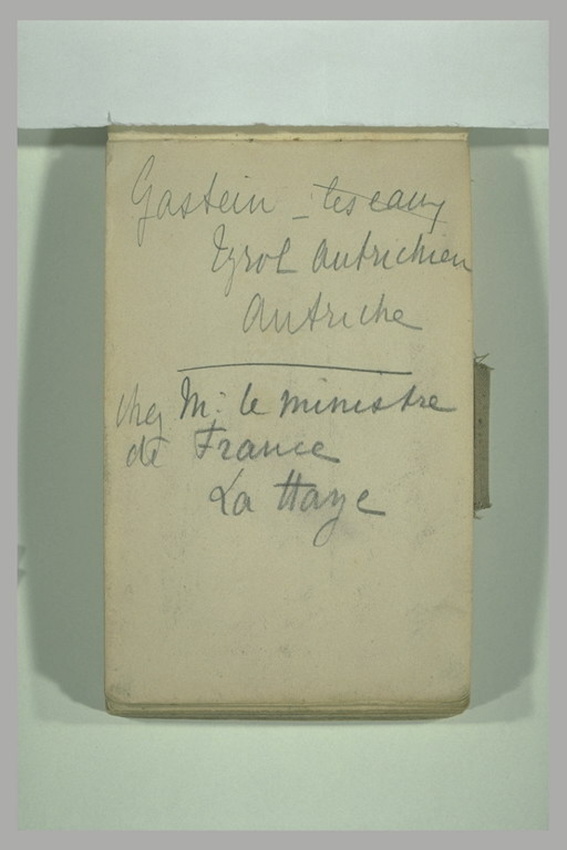 Gastein _ les eaux
Tyrol Autrichien
Autriche
chez M. le ministre
de France
La Haye